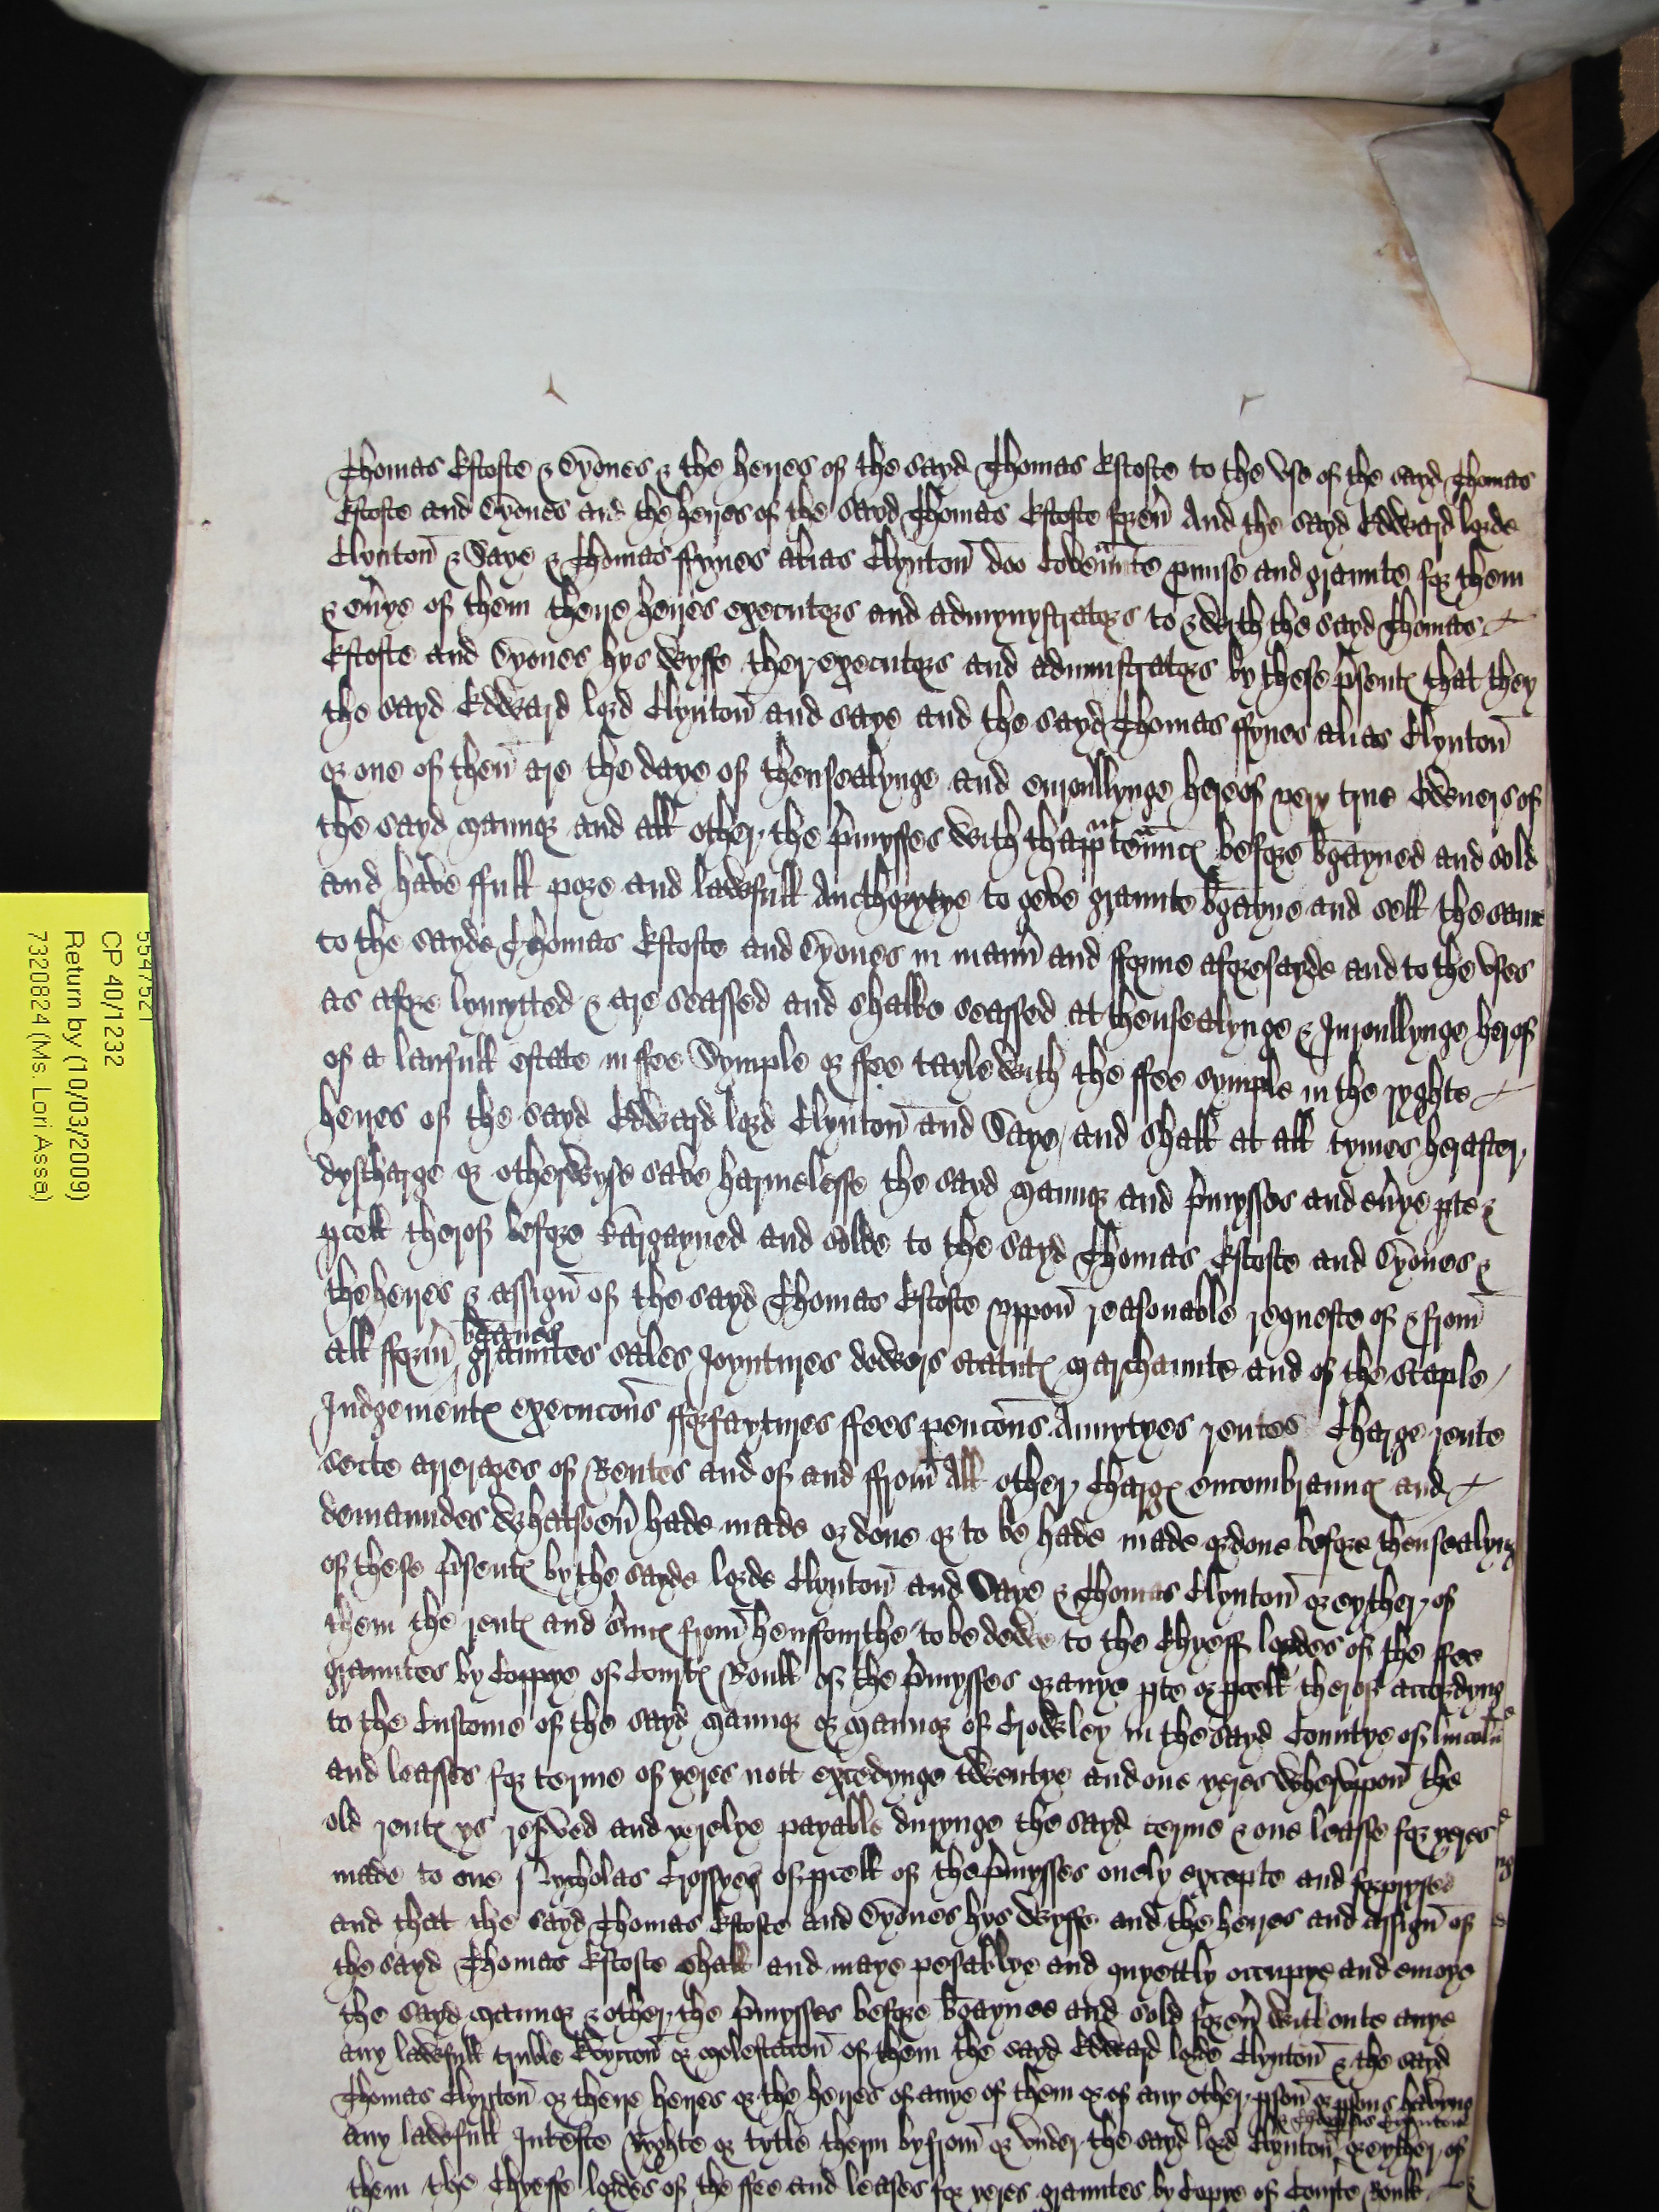 Thomas Estofte & Dyones & the heyres of the sayd Thomas Estofte to the vse of the sayd Thomas
Estofte and Dyones and the heyres of the sayd Thomas Estofte foreu' And the sayd Edward lorde
Clynton & Saye & Thomas ffynes alias Clynton doo Covennte p'mise and graunte for them
& eu'ye of them theyre heyres executors and admynystrators to & with the sayd Thomas
Estofte and Dyones hys Wyffe ther executors and admınıstrators by these p'sent that they
the sayd Edward lord Clynton and saye and the sayd Thomas ffynes alias Clynton
or one of them are the daye of thensealynge and enroullynge hereof very true Owners of
the sayd mannor and all other the p'mysses with thapp'tennc before b'gayned and sold
and have ffull powre and lawfull Aucthorytye to geve graunte b'gayne and sell the same
to the sayde Thomas Estofte and Dyones in mann' and fforme aforesayde and to the vses
as afore lymytted & are seassed and shalbe seassed at thensealynge & Inroullynge herof
of a laufull estate in ffee Symple or ffee tayle with the ffee symple in the ryghte
heyres of the sayd Edward lord Clynton and Saye, and shall at all tymes herafter
dyscharge or otherwyse save harmelesse the sayd mannor and p'mysses and eu'ye p'te &
p'cell therof before bargayned and solde to the sayd Thomas Estofte and Dyones &
the heyres & assign' of the sayd Thomas Estofte vppon reasonable requeste of & from
all fform' b'gaynes grauntes sales Joyntures dowers statut marchaunte and of the staple
Judgement execucons fforfaytures ffees pencons Annytyes rentes Charge rente
secte arrerages of Rentes and of and ffrom All other Charg encombraunc and
demaundes whatsoeu' hade made or done or to be hade made or done before thensealyng
of these p'sent by the sayde lorde Clynton and Saye & Thomas Clynton or eyther of
them the rent and s'uic from hensforthe to be dewe to the Chyeff lordes of the ffee
grauntes by Coppye of Court Roull of the p'mysses or anye p'te or p'cell therof accordyng
to the Custome of the sayd mannor or mannor of Crowley in the sayd Countye of lincoln
and leasses for terme of yeres nott excedynge twentye and one yeres Whervppon the
old rent ys res'ved and yerelye payable durynge the sayd terme & one leasse for yeres
made to one Nycholas of p'cell of the p'mysses onely excepte and forprysed
and that the sayd Thomas Estofte and Dyones hys Wyffe and the heyres and assign' of
the sayd Thomas Estofte shall and maye pesablye and quyettly occupye and enioye
the sayd mannor & other the p'mysses before b'gayned and sold foreu' withoute anye
any lawfull truble Evyccon or molestacon of them the sayd Edward lorde Clynton & the sayd
Thomas Clynton or theyre heyres or the heyres of anye of them or of any other p'son or p'sons havyng
& Thomas Clynton
any lawfull Intereste Ryghte or tytle therin by from or vnder the sayd lord Clynton or eyther of
them the Chyeffe lordes of the ffee and leases for yeres grauntes by Copye of Courte Roull
5547521
CP 40/1232
Return by (10/03/2009)
7320824 (Ms. Lori Asse)